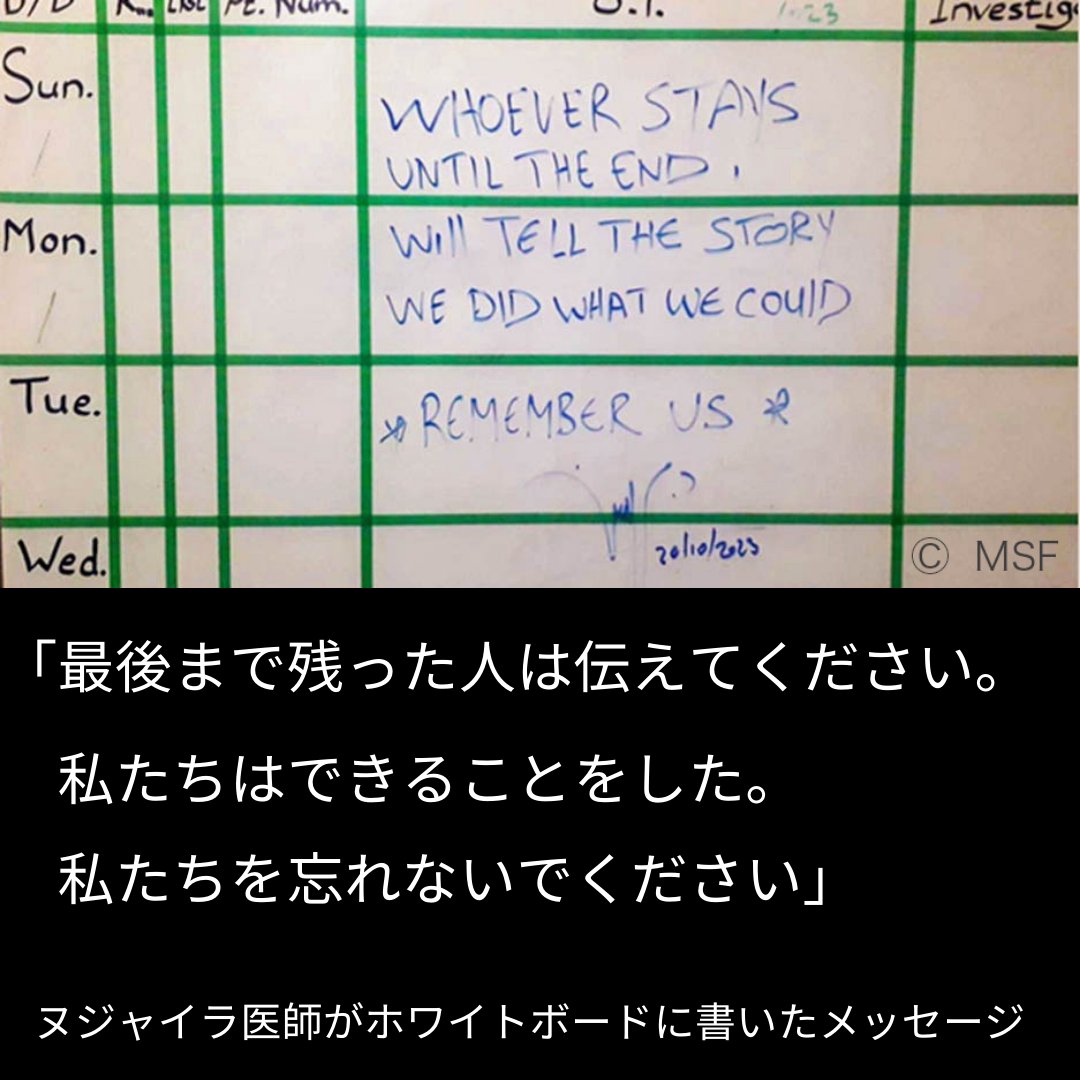 Pt. Num.
Investig
Sun.
WHOEVER STAYS
UNTIL THE END,
Mon.
Will TELL THE STORY
WE DID WHAT WE COUlD
Tue.
REMEMBER US
20/10/2023
Wed.
© MSF
「最後まで残った人は伝えてください。
私たちはできることをした。
私たちを忘れないでください」
ヌジャイラ医師がホワイトボードに書いたメッセージ